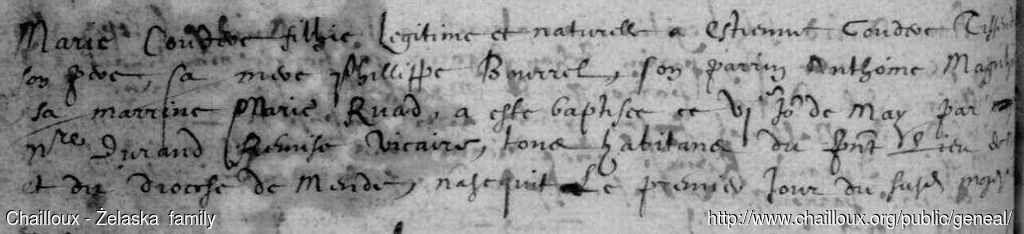 Marie Coudere filhie legitime et naturelle a Estienne Coudere
son pere, sa mere Phillippe Bourrel, son parrin Anthoine
sa marrine Marie Ruad, a este baptisee ce vi Jor de May par
nre Durand vicaire, tous habitans du pnt Lieu
et du diocese de Mende, nasequit Le premier Jour du susd mois
Chailloux - Żelaska family
http://www.chailloux.org/public/geneal/